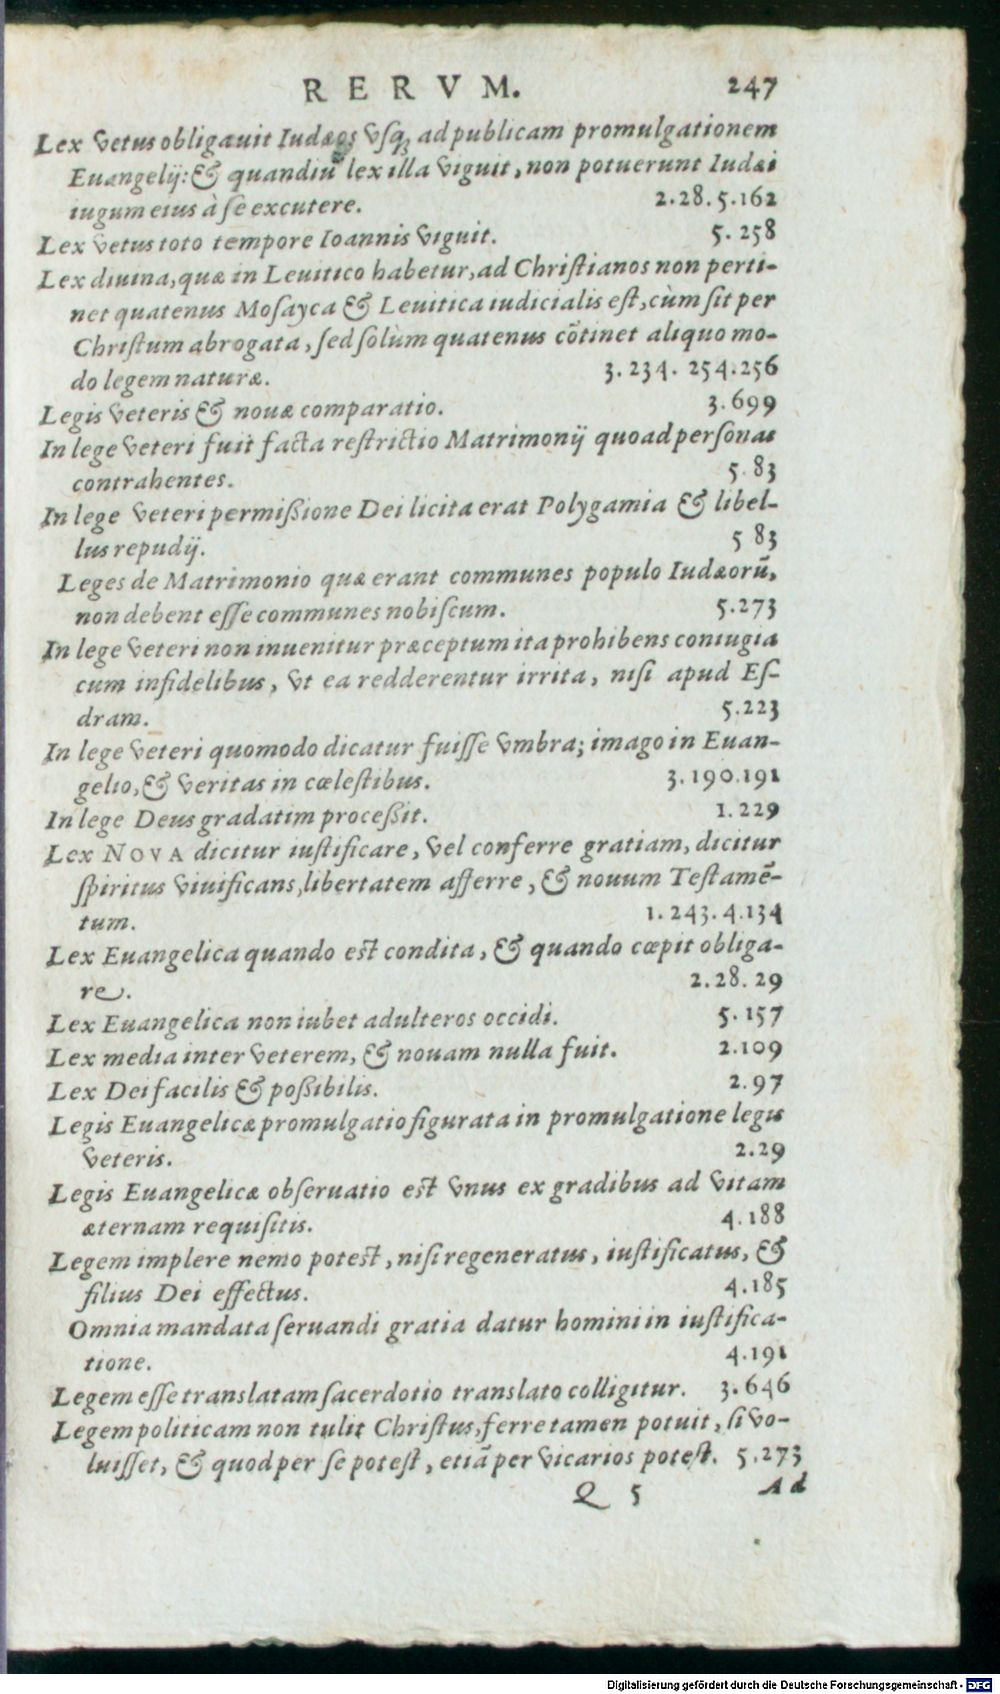 RERVM. 247
Lex vetus obligauit Iudæos vsq; ad publicam promulgationem
Euangelij: & quandiu lex illa viguit, non potuerunt Iudæi
iugum eius à se excutere. 2.28.5.162
Lex vetus toto tempore Ioannis viguit. 5.258
Lex diuina, quæ in Leuitico habetur, ad Christianos non perti-
net quatenus Mosayca & Leuitica iudicialis est, cùm sit per
Christum abrogata, sed solùm quatenus cõtinet aliquo mo-
do legem naturæ. 3.234.254.256
Legis veteris & nouæ comparatio. 3.699
In lege veteri fuit facta restrictio Matrimonij quoad personas
contrahentes. 5.83
In lege veteri permißione Dei licita erat Polygamia & libel-
lus repudij. 5 83
Leges de Matrimonio quæ erant communes populo Iudæorũ,
non debent esse communes nobiscum. 5.273
In lege veteri non inuenitur præceptum ita prohibens coniugia
cum infidelibus, vt ea redderentur irrita, nisi apud Es-
dram. 5.223
In lege veteri quomodo dicatur fuisse vmbra; imago in Euan-
gelio, & veritas in cœlestibus. 3.190.191
In lege Deus gradatim proceßit. 1.229
Lex NOVA dicitur iustificare, vel conferre gratiam, dicitur
spiritus viuificans, libertatem afferre, & nouum Testamẽ-
tum. 1.243.4.134
Lex Euangelica quando est condita, & quando cœpit obliga-
re. 2.28.29
Lex Euangelica non iubet adulteros occidi. 5.157
Lex media inter veterem, & nouam nulla fuit. 2.109
Lex Dei facilis & poßibilis. 2.97
Legis Euangelicæ promulgatio figurata in promulgatione legis
veteris. 2.29
Legis Euangelicæ obseruatio est vnus ex gradibus ad vitam
æternam requisitis. 4.188
Legem implere nemo potest, nisi regeneratus, iustificatus, &
filius Dei effectus. 4.185
Omnia mandata seruandi gratia datur homini in iustifica-
tione. 4.191
Legem esse translatam sacerdotio translato colligitur. 3.646
Legem politicam non tulit Christus, ferre tamen potuit, si vo-
luisset, & quod per se potest, etiã per vicarios potest. 5.273
Q 5 Ad
Digitalisierung gefördert durch die Deutsche Forschungsgemeinschaft - DFG